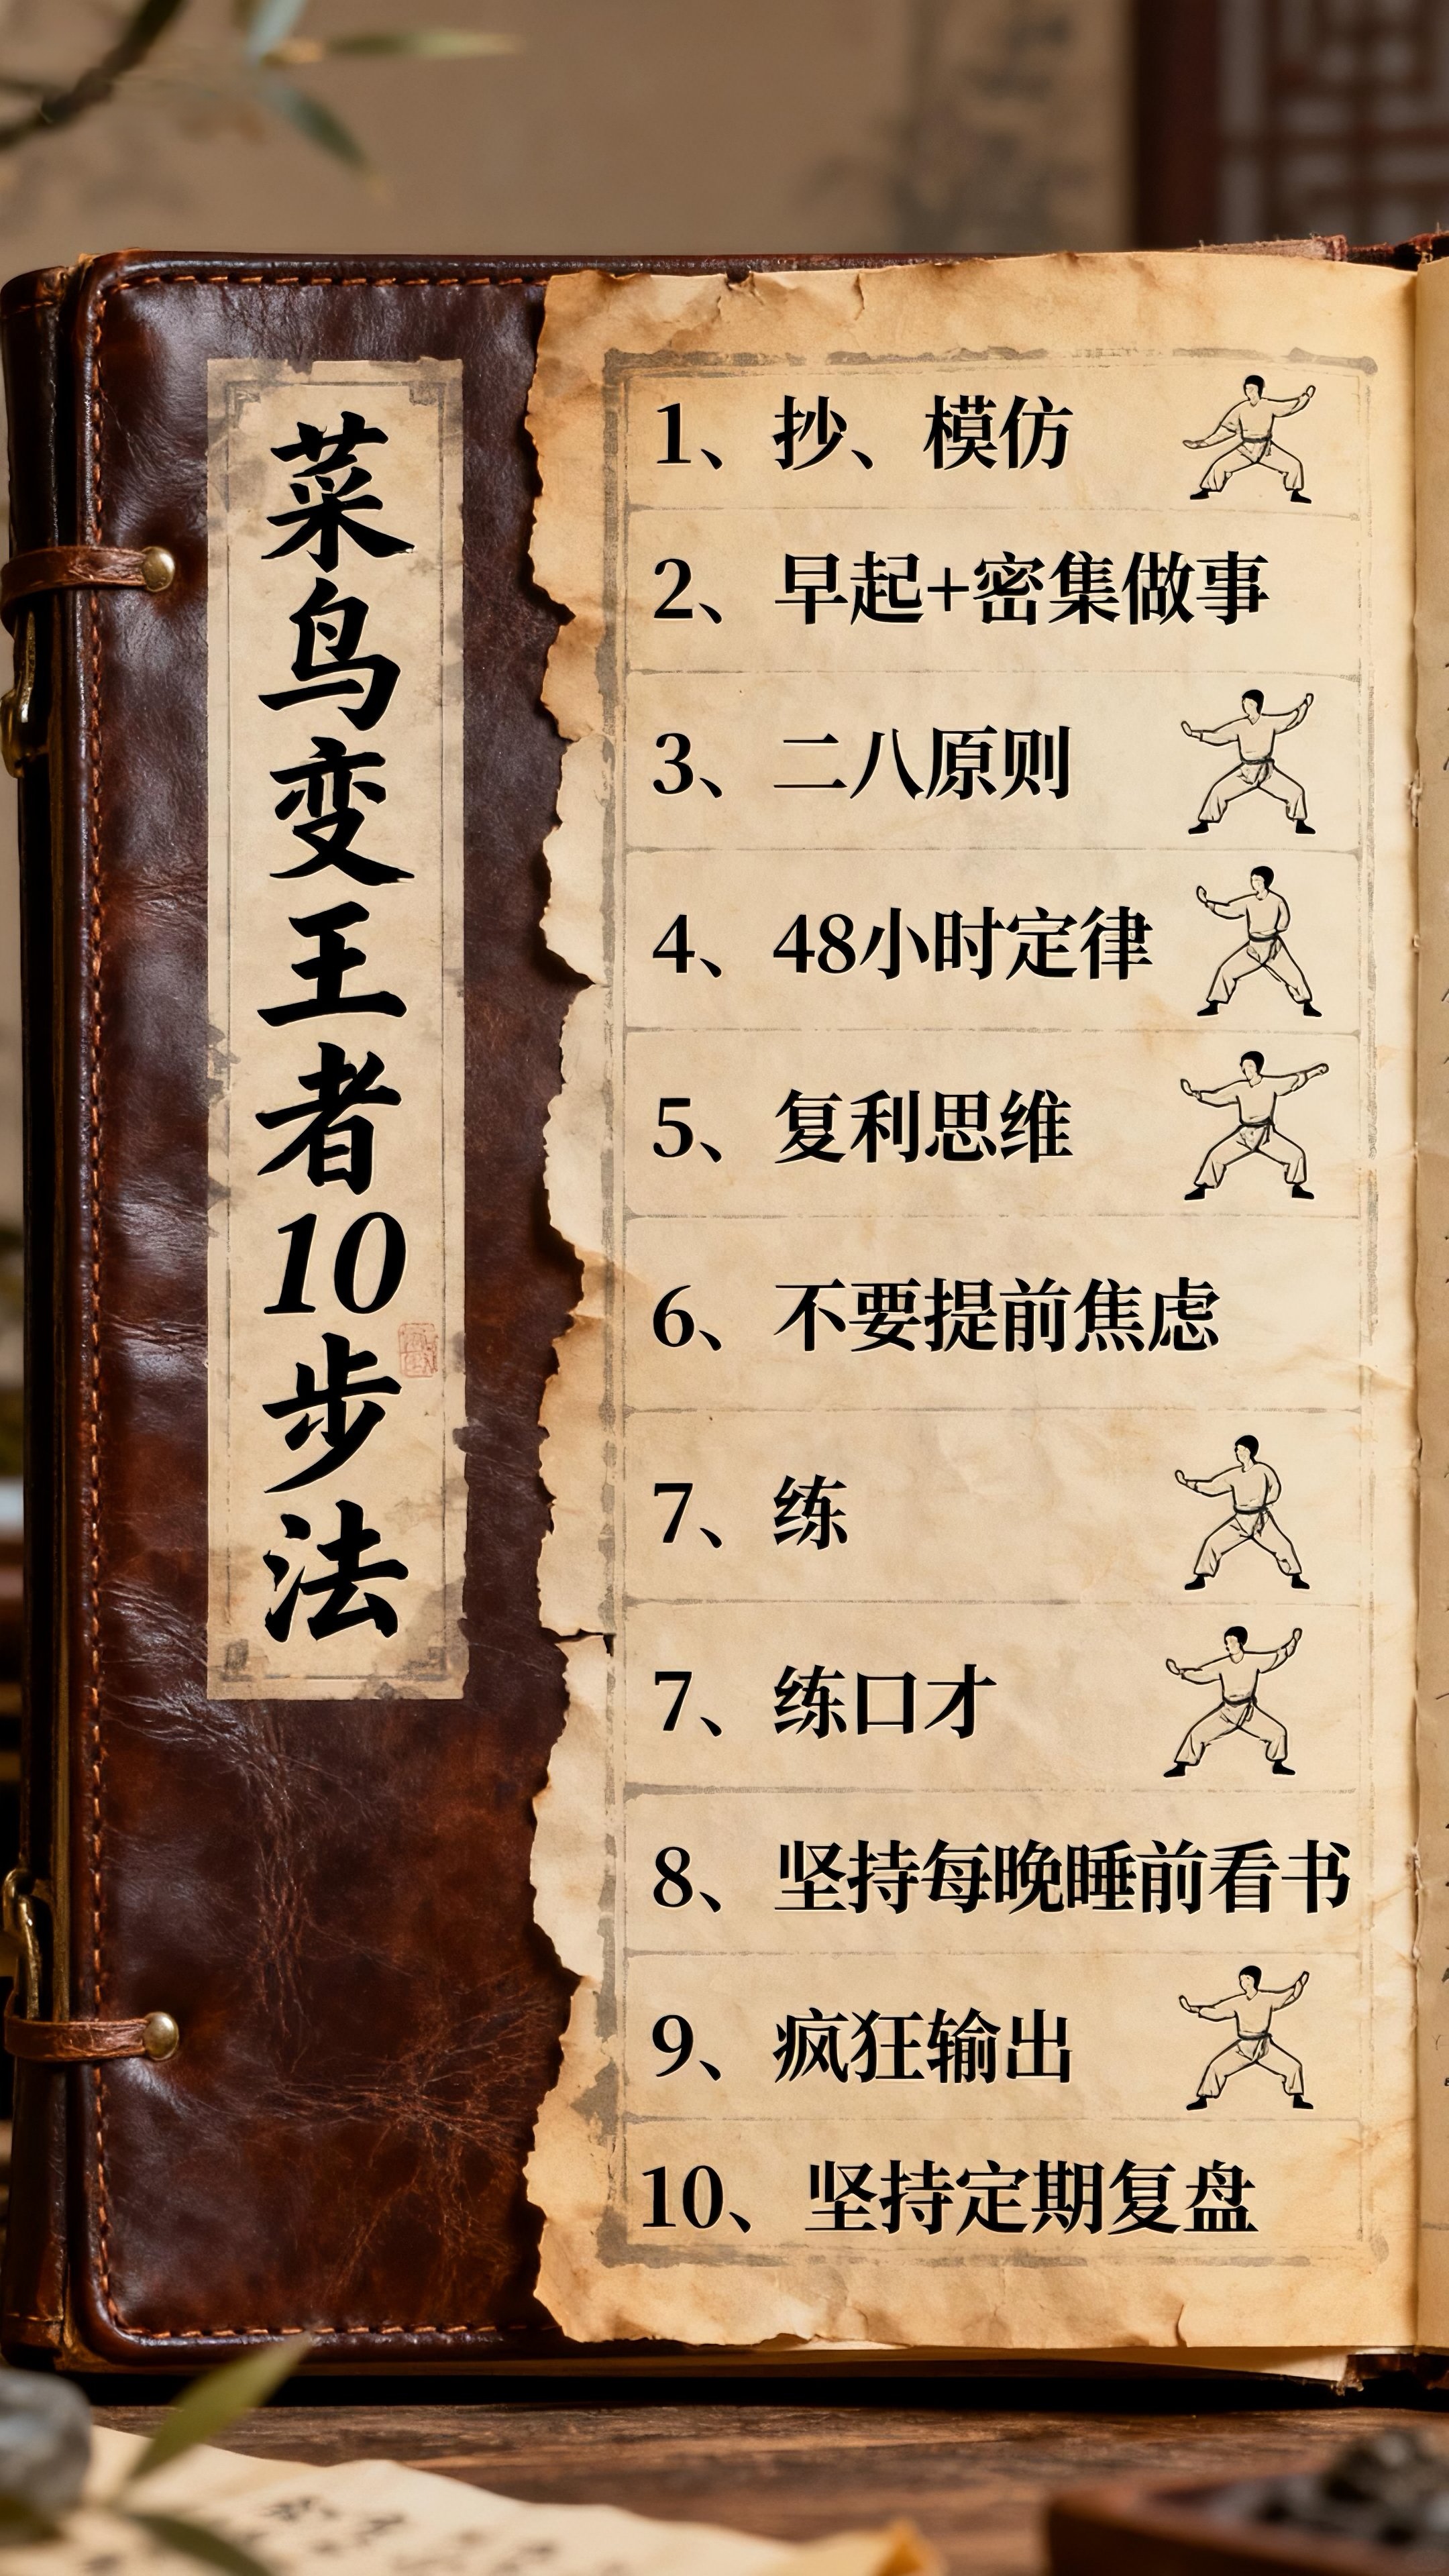 菜鸟变王者10步法
1、抄、模仿
2、早起+密集做事
3、二八原则
4、48小时定律
5、复利思维
6、不要提前焦虑
7、练
7、练口才
8、坚持每晚睡前看书
9、疯狂输出
10、坚持定期复盘